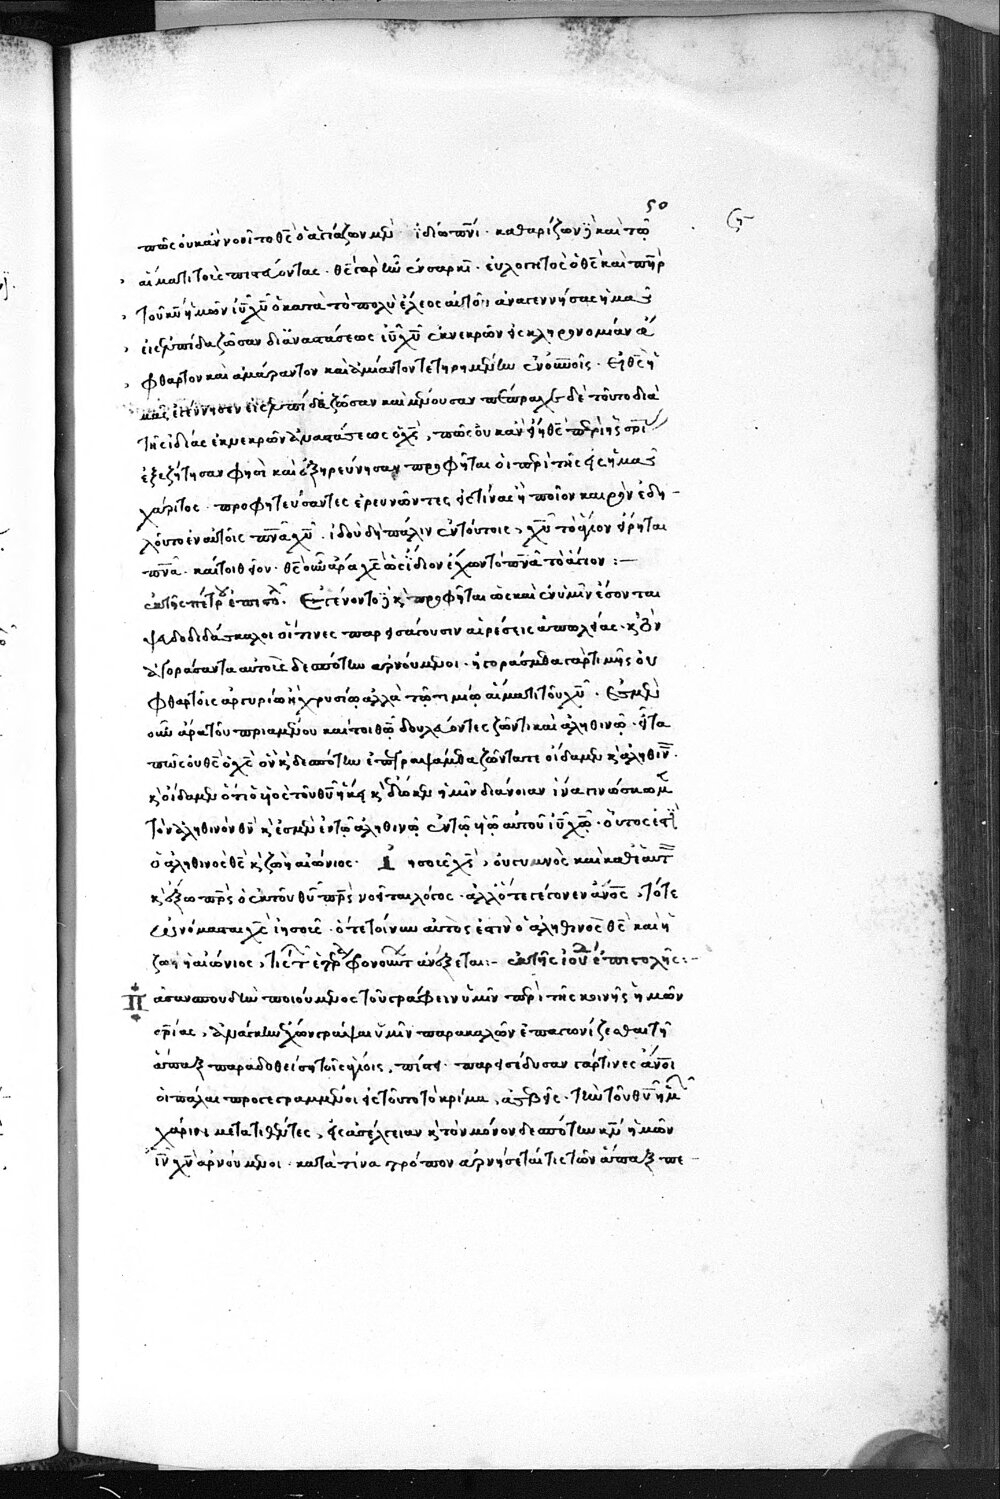 50
πῶς οὐκ ἂν νοοῖτο θς ὁ ἁγιάζων μὲν ἰδίω πνι · καθαρίζων δὲ καὶ τῶ
αἵματι τοὺς πιστεύοντας · θς γὰρ ἦν ἐν σαρκὶ · εὐλογητὸς ὁ θς καὶ πηρ
τοῦ κυ ἡμῶν ιυ χυ ὁ κατὰ τὸ πολὺ ἔλεος αὐτοῦ ἀναγεννήσας ἡμᾶς
εἰς ἐλπίδα ζῶσαν δι' ἀναστάσεως ιυ χυ ἐκ νεκρῶν εἰς κληρονομίαν ἄ
φθαρτον καὶ ἀμάραντον καὶ ἀμίαντον τετηρημένην ἐν οὐνοῖς · εἰ θς ἡ
μᾶς ἐγέννησεν εἰς ἐλπίδα ζῶσαν καὶ μένουσαν δὲ τοῦτο διὰ
τῆς ἰδίας ἐκ νεκρῶν ἀναστάσεως ὁ χς, πῶς οὐκ ἂν εἴη θς περὶ ἧς σρι
ἐξεζήτησαν φησὶ καὶ ἐξηρεύνησαν προφῆται οἱ περὶ τῆς εἰς ἡμᾶς
χάριτος · προφητεύσαντες ἐρευνῶντες εἰς τίνα ἢ ποῖον καιρὸν ἐδη-
λοῦτο ἐν αὐτοῖς πνα χυ · ἰδοὺ δὴ πάλιν ἐν τούτοις, χυ τὸ ἅγιον εἴρηται
πνα · καίτοι θεῖον · θς οὖν ἄρα χς ὡς ἴδιον ἔχων τὸ πνα τὸ ἅγιον :—
ἐκ τῆς πέτρου ἐπιστο. Ἐγένοντο δὲ κ προφῆται ὡς καὶ ἐν ὑμῖν ἔσονται
ψευδοδιδάσκαλοι οἵτινες παρεισάγουσιν αἱρέσεις ἀπωλείας · κ τὸν
ἀγοράσαντα αὐτοὺς δεσπότην ἀρνούμενοι · ἠγοράσμεθα γὰρ τιμῆς οὐ
φθαρτοῖς ἀργυρίω ἢ χρυσίω ἀλλὰ τῶ τιμίω αἵματι τοῦ χυ · Ἐσμὲν
οὖν ἄρα τοῦ πριαμένου καίτοι θω δουλεύοντες ζῶντι καὶ ἀληθινῶ · εἶτα
πῶς οὐ θς ὁ χς ὃν κ δεσπότην ἐπεγραψάμεθα ζῶντα τε οἴδαμεν κ ἀληθιν ·
κ οἴδαμεν ὅτι ὁ υἱὸς τοῦ θυ ἥκει κ δέδωκεν ἡμῖν διάνοιαν ἵνα γινώσκωμεν
τὸν ἀληθινὸν θν κ ἐσμὲν ἐν τῶ ἀληθινῶ ἐν τῶ υἱῶ αὐτοῦ ιυ χω · οὗτός ἐστι
ὁ ἀληθινὸς θς κ ζωὴ αἰώνιος · Ἰησοῦς χς, οὐ γυμνὸς καὶ καθ' ἑαυτ
κ ἔξω πρς ὁ ἐκ τοῦ θυ πρς νοεῖται λόγος · ἀλλ' ὅτε γέγονεν ἄνος, τότε
ὠνόμασται χς ἰησοῦς · ὅτε τοίνυν αὐτός ἐστιν ὁ ἀληθινὸς θς καὶ ἡ
ζωὴ ἡ αἰώνιος, ἀνέξεται :- ἐκ τῆς ἰούδα ἐπιστολῆς :-
Πᾶσαν σπουδὴν ποιούμενος τοῦ γράφειν ὑμῖν περὶ τῆς κοινῆς ἡμῶν
σρίας, ἀνάγκην ἔχων γράψαι ὑμῖν παρακαλῶν ἐπαγωνίζεσθαι τῆ
ἅπαξ παραδοθείση τοῖς ἁγίοις, πίστει · παρεισέδυσαν γάρ τινες ἄνοι
οἱ πάλαι προγεγραμμένοι εἰς τοῦτο τὸ κρίμα, ἀσεβεῖς · τὴν τοῦ θυ ἡμῶν
χάριν μετατιθέντες, εἰς ἀσέλγειαν κ τὸν μόνον δεσπότην κν ἡμῶν
ιν χν ἀρνούμενοι · κατὰ τίνα τρόπον ἀρνήσεταί τις τῶν ἅπαξ πε-